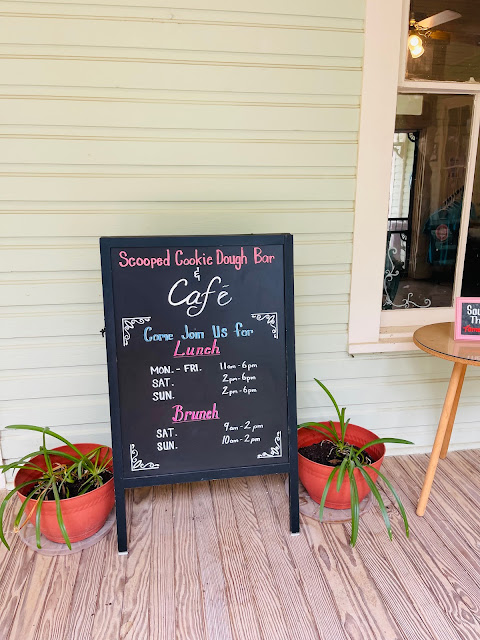 Scooped Cookie Dough Bar
&
Café
Come Join Us for
Lunch
MON. - FRI. 11am - 6pm
SAT. 2pm - 6pm
SUN. 2pm - 6pm
Brunch
SAT. 9am - 2pm
SUN. 10am - 2pm